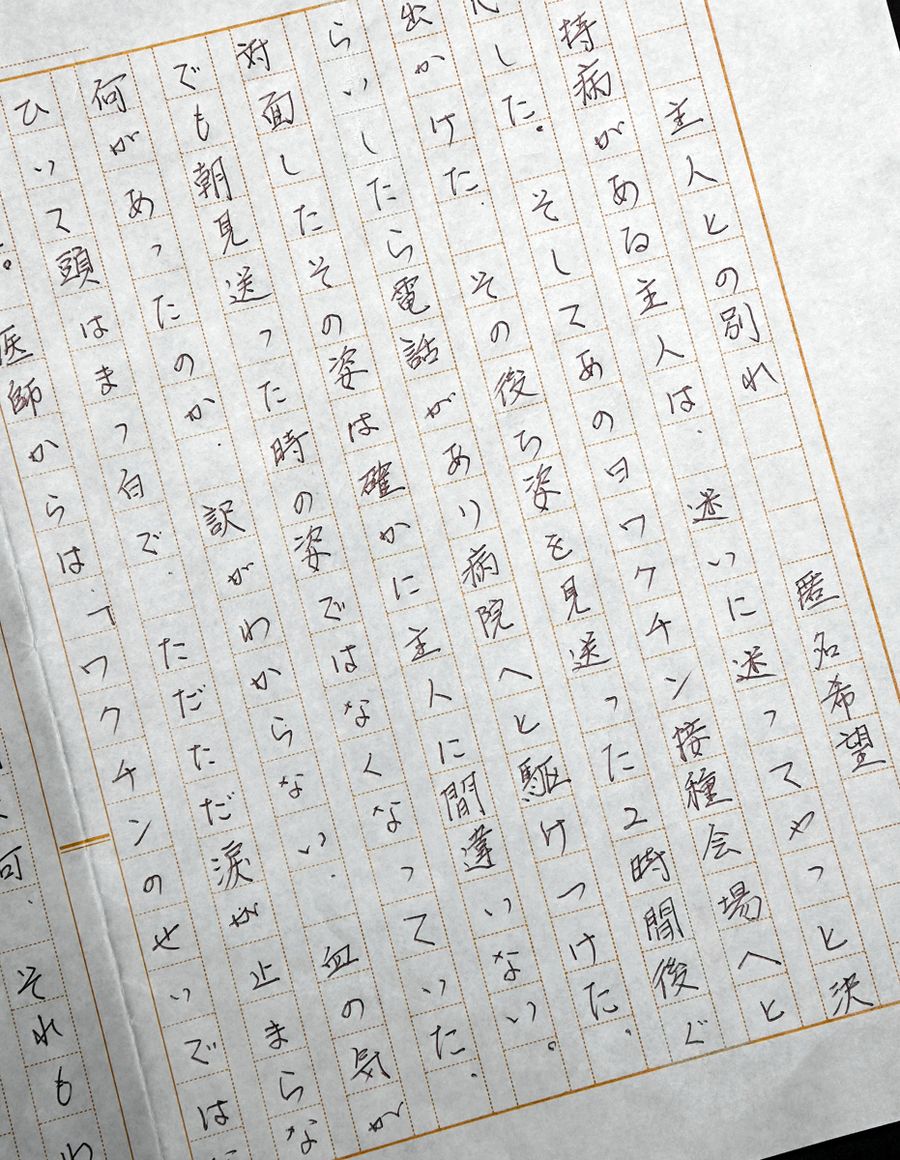 主人との別れ　　匿名希望
持病がある主人は、迷いに迷ってやっと決
心した。そしてあの日ワクチン接種会場へと
出かけた、その後ろ姿を見送った2時間後ぐ
らいしたら電話があり病院へと駆けつけた、
対面したその姿は確かに主人に間違いない。
でも朝見送った時の姿ではなくなっていた、
何があったのか、訳がわからない、血の気が
ひいて頭はまっ白で、ただただ涙が止まらな
。医師からは、「ワクチンのせいでは
、それもわ